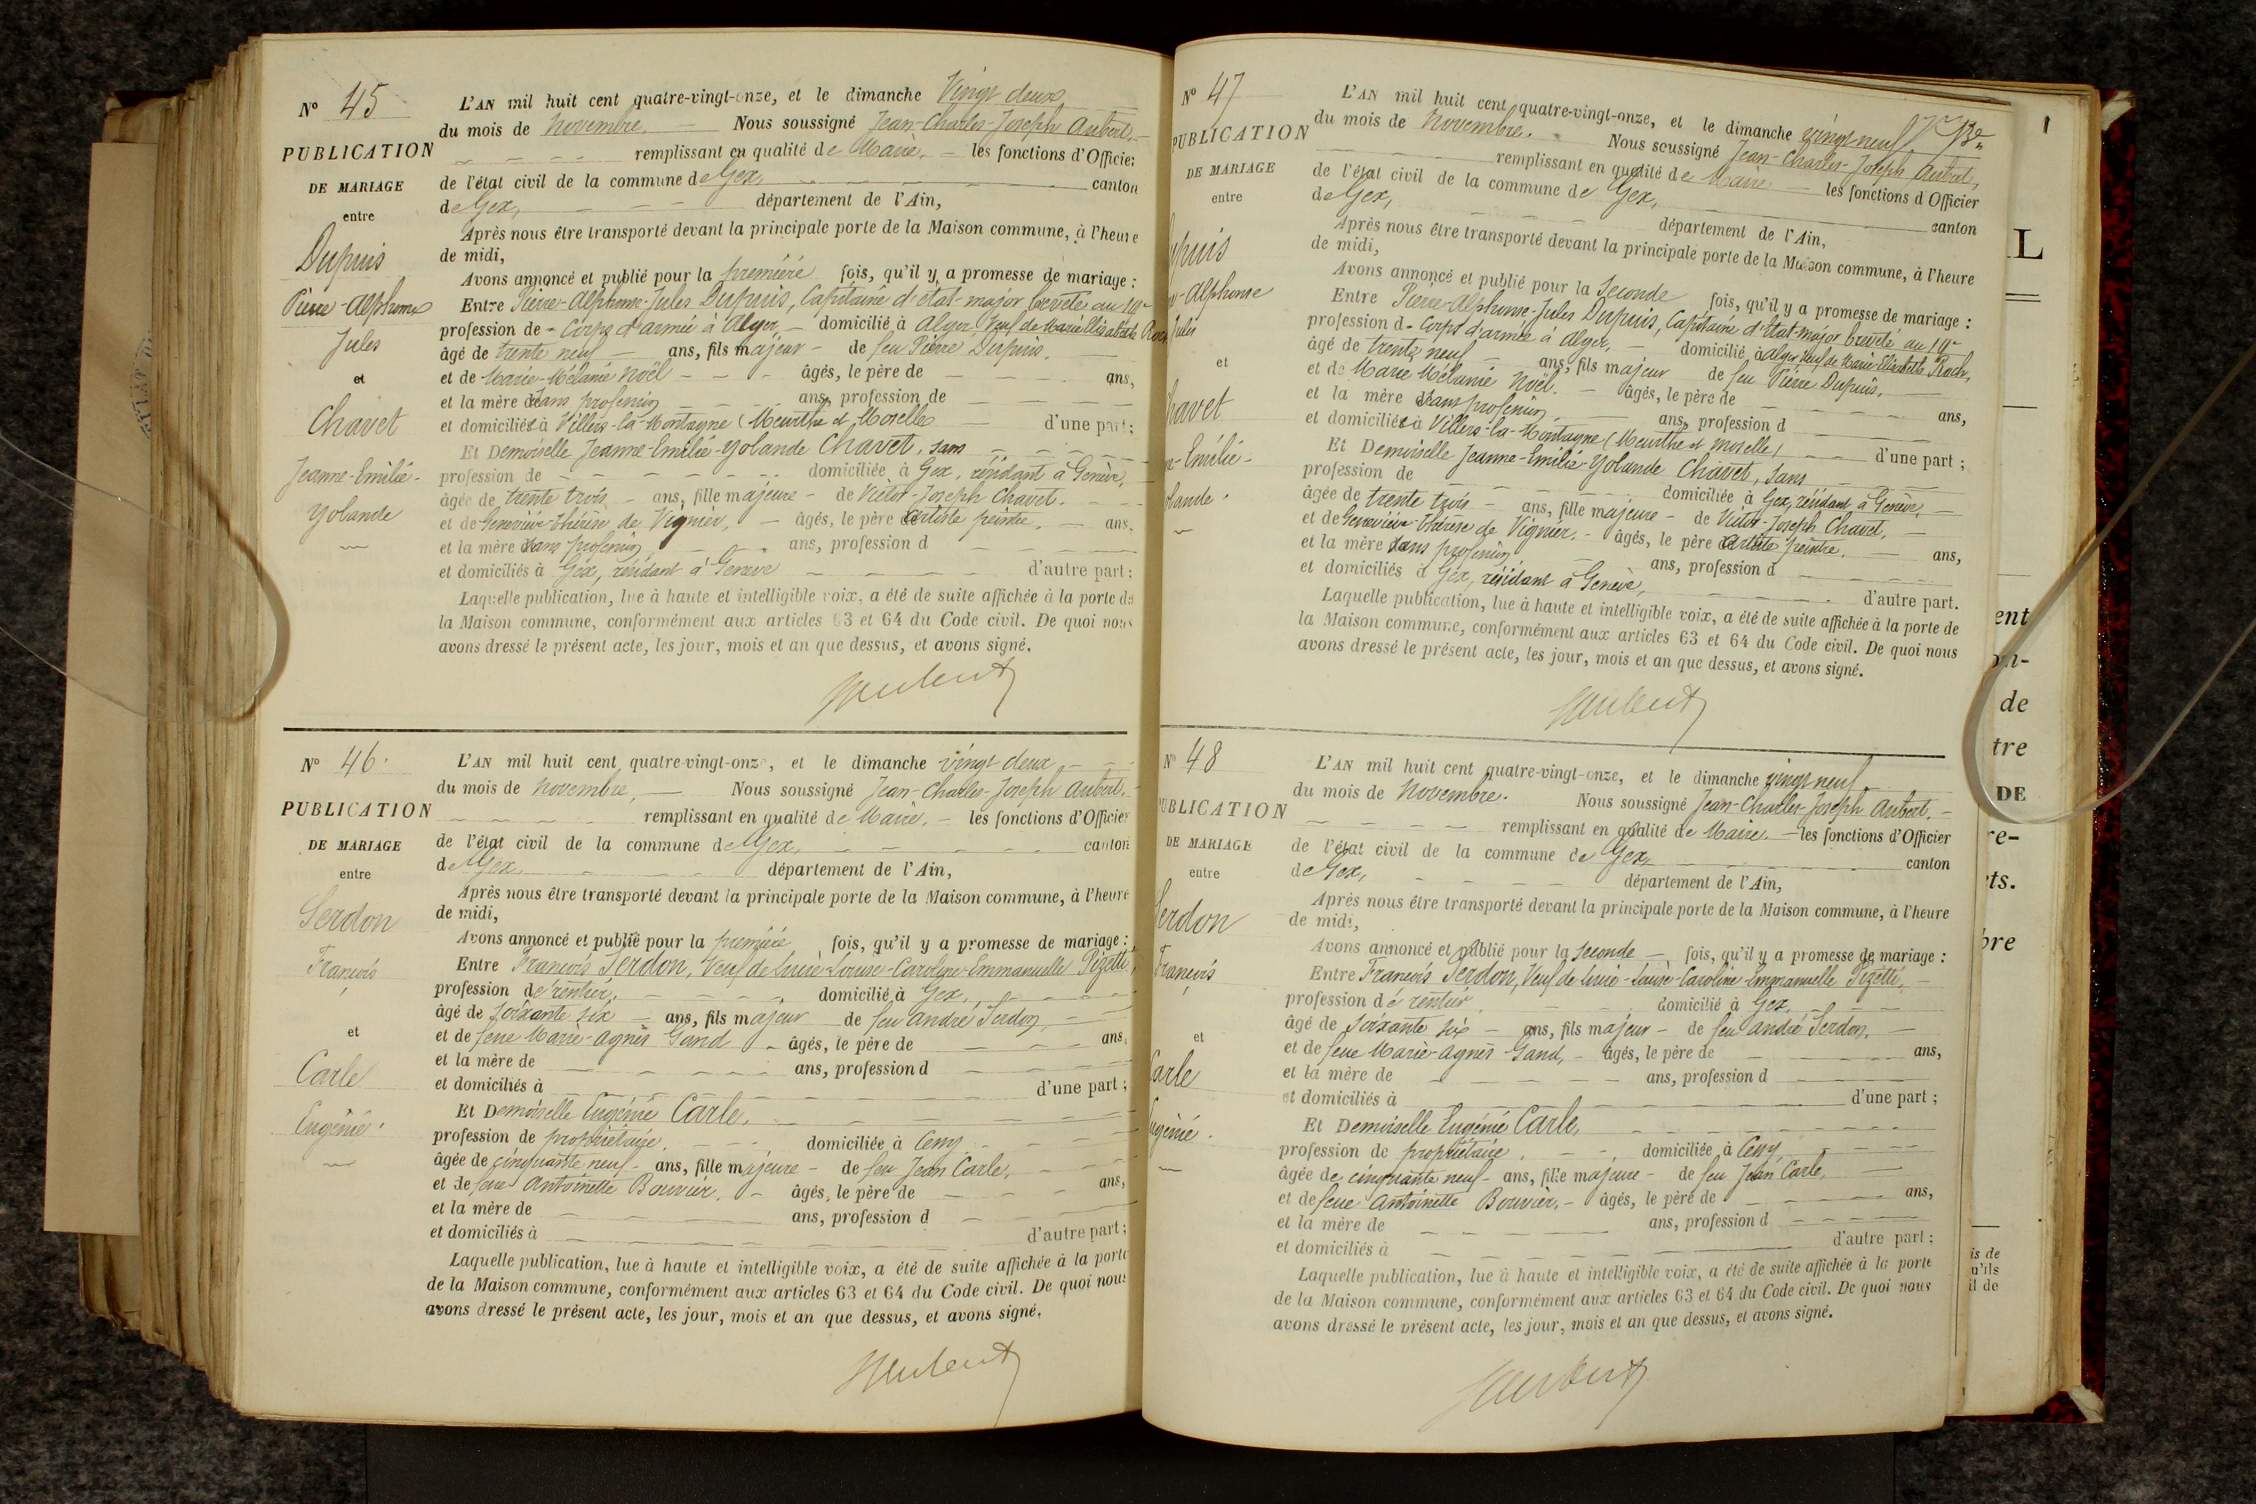 N° 45
PUBLICATION
DE MARIAGE
entre
Dupuis
Pierre-Alphonse
Jules
et
Chavet
Jeanne-Emilie-
Yolande
L'AN mil huit cent quatre-vingt-onze, et le dimanche Vingt deux
du mois de Novembre. Nous soussigné Jean-Charles-Joseph Aubert,
remplissant en qualité de Maire, les fonctions d'Officier
de l'état civil de la commune de Gex, canton
de Gex, département de l'Ain,
Après nous être transporté devant la principale porte de la Maison commune, à l'heure
de midi,
Avons annoncé et publié pour la première fois, qu'il y a promesse de mariage :
Entre Pierre-Alphonse-Jules Dupuis, Capitaine d'état-major breveté au 19e
profession de Corps d'armée à Alger, domicilié à Alger, Veuf de Marie Elisabeth Roch
âgé de trente neuf ans, fils majeur de feu Pierre Dupuis.
et de Marie-Mélanie Noël âgés, le père de ans,
et la mère sans profession ans, profession de
et domiciliés à Villers-la-Montagne (Meurthe et Moselle d'une part ;
Et Demoiselle Jeanne-Emilie-Yolande Chavet, sans
profession de domiciliée à Gex, résidant à Genève,
âgée de trente trois ans, fille majeure de Victor-Joseph Chavet.
et de Geneviève-Thérèse de Vignier, âgés, le père artiste peintre. ans,
et la mère sans profession, ans, profession d
et domiciliés à Gex, résidant à Genève d'autre part :
Laquelle publication, lue à haute et intelligible voix, a été de suite affichée à la porte de
la Maison commune, conformément aux articles 63 et 64 du Code civil. De quoi nous
avons dressé le présent acte, les jour, mois et an que dessus, et avons signé.
JAubert
N° 46
PUBLICATION
DE MARIAGE
entre
Serdon
François
et
Carle
Eugénie
L'AN mil huit cent quatre-vingt-onze, et le dimanche vingt deux
du mois de Novembre, Nous soussigné Jean-Charles-Joseph Aubert.
remplissant en qualité de Maire, les fonctions d'Officier
de l'état civil de la commune de Gex, canton
de Gex département de l'Ain,
Après nous être transporté devant la principale porte de la Maison commune, à l'heure
de midi,
Avons annoncé et publié pour la première fois, qu'il y a promesse de mariage :
Entre François Serdon, Veuf de Lucie-Louise-Caroline-Emmanuelle Pizetti,
profession de rentier, domicilié à Gex,
âgé de soixante six ans, fils majeur de feu André Serdon,
et de feue Marie-Agnès Gand âgés, le père de ans,
et la mère de ans, profession d
et domiciliés à d'une part ;
Et Demoiselle Eugénie Carle.
profession de propriétaire. domiciliée à Cessy
âgée de cinquante neuf ans, fille majeure de feu Jean Carle,
et de feue Antoinette Bouvier. âgés, le père de ans,
et la mère de ans, profession d
et domiciliés à d'autre part ;
Laquelle publication, lue à haute et intelligible voix, a été de suite affichée à la porte
de la Maison commune, conformément aux articles 63 et 64 du Code civil. De quoi nous
avons dressé le présent acte, les jour, mois et an que dessus, et avons signé.
JAubert
N° 47
PUBLICATION
DE MARIAGE
entre
puis
Alphonse
Jules
et
havet
Emilie-
olande
L'AN mil huit cent quatre-vingt-onze, et le dimanche vingt neuf
du mois de Novembre. Nous soussigné Jean-Charles-Joseph Aubert,
remplissant en qualité de Maire les fonctions d'Officier
de l'état civil de la commune de Gex, canton
de Gex, département de l'Ain,
Après nous être transporté devant la principale porte de la Maison commune, à l'heure
de midi,
Avons annoncé et publié pour la Seconde fois, qu'il y a promesse de mariage :
Entre Pierre-Alphonse-Jules Dupuis, Capitaine d'Etat-major breveté au 19e
profession d Corps d'armée à Alger, domicilié à Alger, Veuf de Marie Elisabeth Roch,
âgé de trente neuf ans, fils majeur de feu Pierre Dupuis.
et de Marie Mélanie Noël. âgés, le père de ans,
et la mère sans profession. ans, profession d
et domiciliés à Villers-la-Montagne (Meurthe et Moselle) d'une part ;
Et Demoiselle Jeanne-Emilie-Yolande Chavet, sans
profession de domiciliée à Gex, résidant à Genève,
âgée de trente trois ans, fille majeure de Victor-Joseph Chavet,
et de Geneviève-Thérèse de Vignier. âgés, le père artiste peintre. ans,
et la mère sans profession ans, profession d
et domiciliés à Gex, résidant à Genève, d'autre part.
Laquelle publication, lue à haute et intelligible voix, a été de suite affichée à la porte de
la Maison commune, conformément aux articles 63 et 64 du Code civil. De quoi nous
avons dressé le présent acte, les jour, mois et an que dessus, et avons signé.
JAubert
N° 48
UBLICATION
DE MARIAGE
entre
Serdon
François
et
Carle
ugénie.
L'AN mil huit cent quatre-vingt-onze, et le dimanche vingt neuf
du mois de Novembre. Nous soussigné Jean-Charles-Joseph Aubert.
remplissant en qualité de Maire. les fonctions d'Officier
de l'état civil de la commune de Gex, canton
de Gex, département de l'Ain,
Après nous être transporté devant la principale porte de la Maison commune, à l'heure
de midi,
Avons annoncé et publié pour la seconde fois, qu'il y a promesse de mariage :
Entre François Serdon, Veuf de Lucie-Louise-Caroline-Emmanuelle Pizetti,
profession de rentier domicilié à Gex,
âgé de soixante six ans, fils majeur de feu André Serdon,
et de feue Marie-Agnès Gand, âgés, le père de ans,
et la mère de ans, profession d
et domiciliés à d'une part ;
Et Demoiselle Eugénie Carle,
profession de propriétaire, domiciliée à Cessy
âgée de cinquante neuf ans, fille majeure de feu Jean Carle,
et de feue Antoinette Bouvier, âgés, le père de ans,
et la mère de ans, profession d
et domiciliés à d'autre part ;
Laquelle publication, lue à haute et intelligible voix, a été de suite affichée à la porte
de la Maison commune, conformément aux articles 63 et 64 du Code civil. De quoi nous
avons dressé le présent acte, les jour, mois et an que dessus, et avons signé.
JAubert
L
ent
on-
de
tre
DE
re-
ets.
bre
is de
u'ils
il de